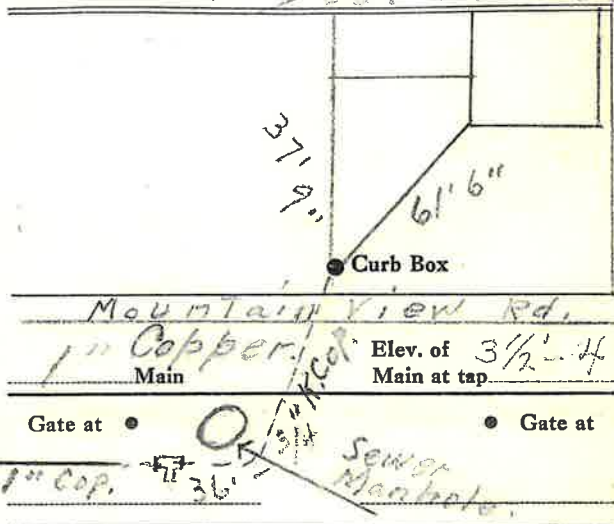 37' 9"
61' 6"
Curb Box
Mountain View Rd.
1" Copper Main
Elev. of Main at tap 3½'-4
3/4" K. Cop
Gate at
Gate at
Sewer
Manhole.
1" Cop.
36'